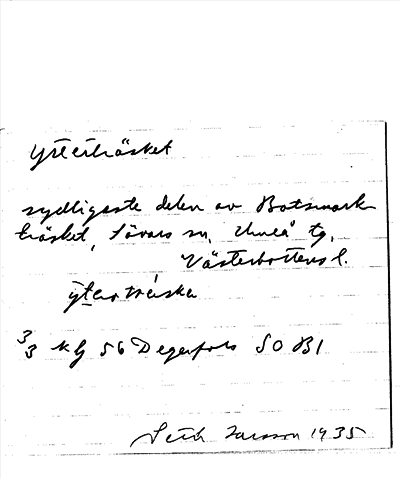 Ytterträsket
sydligaste delen av Botsmark
träsket, Sävars sn, Umeå tg,
Västerbottens l.
ytərtrɛ́ska
3/3 Kg 56 Degerfors SO B1
Larsson 1935